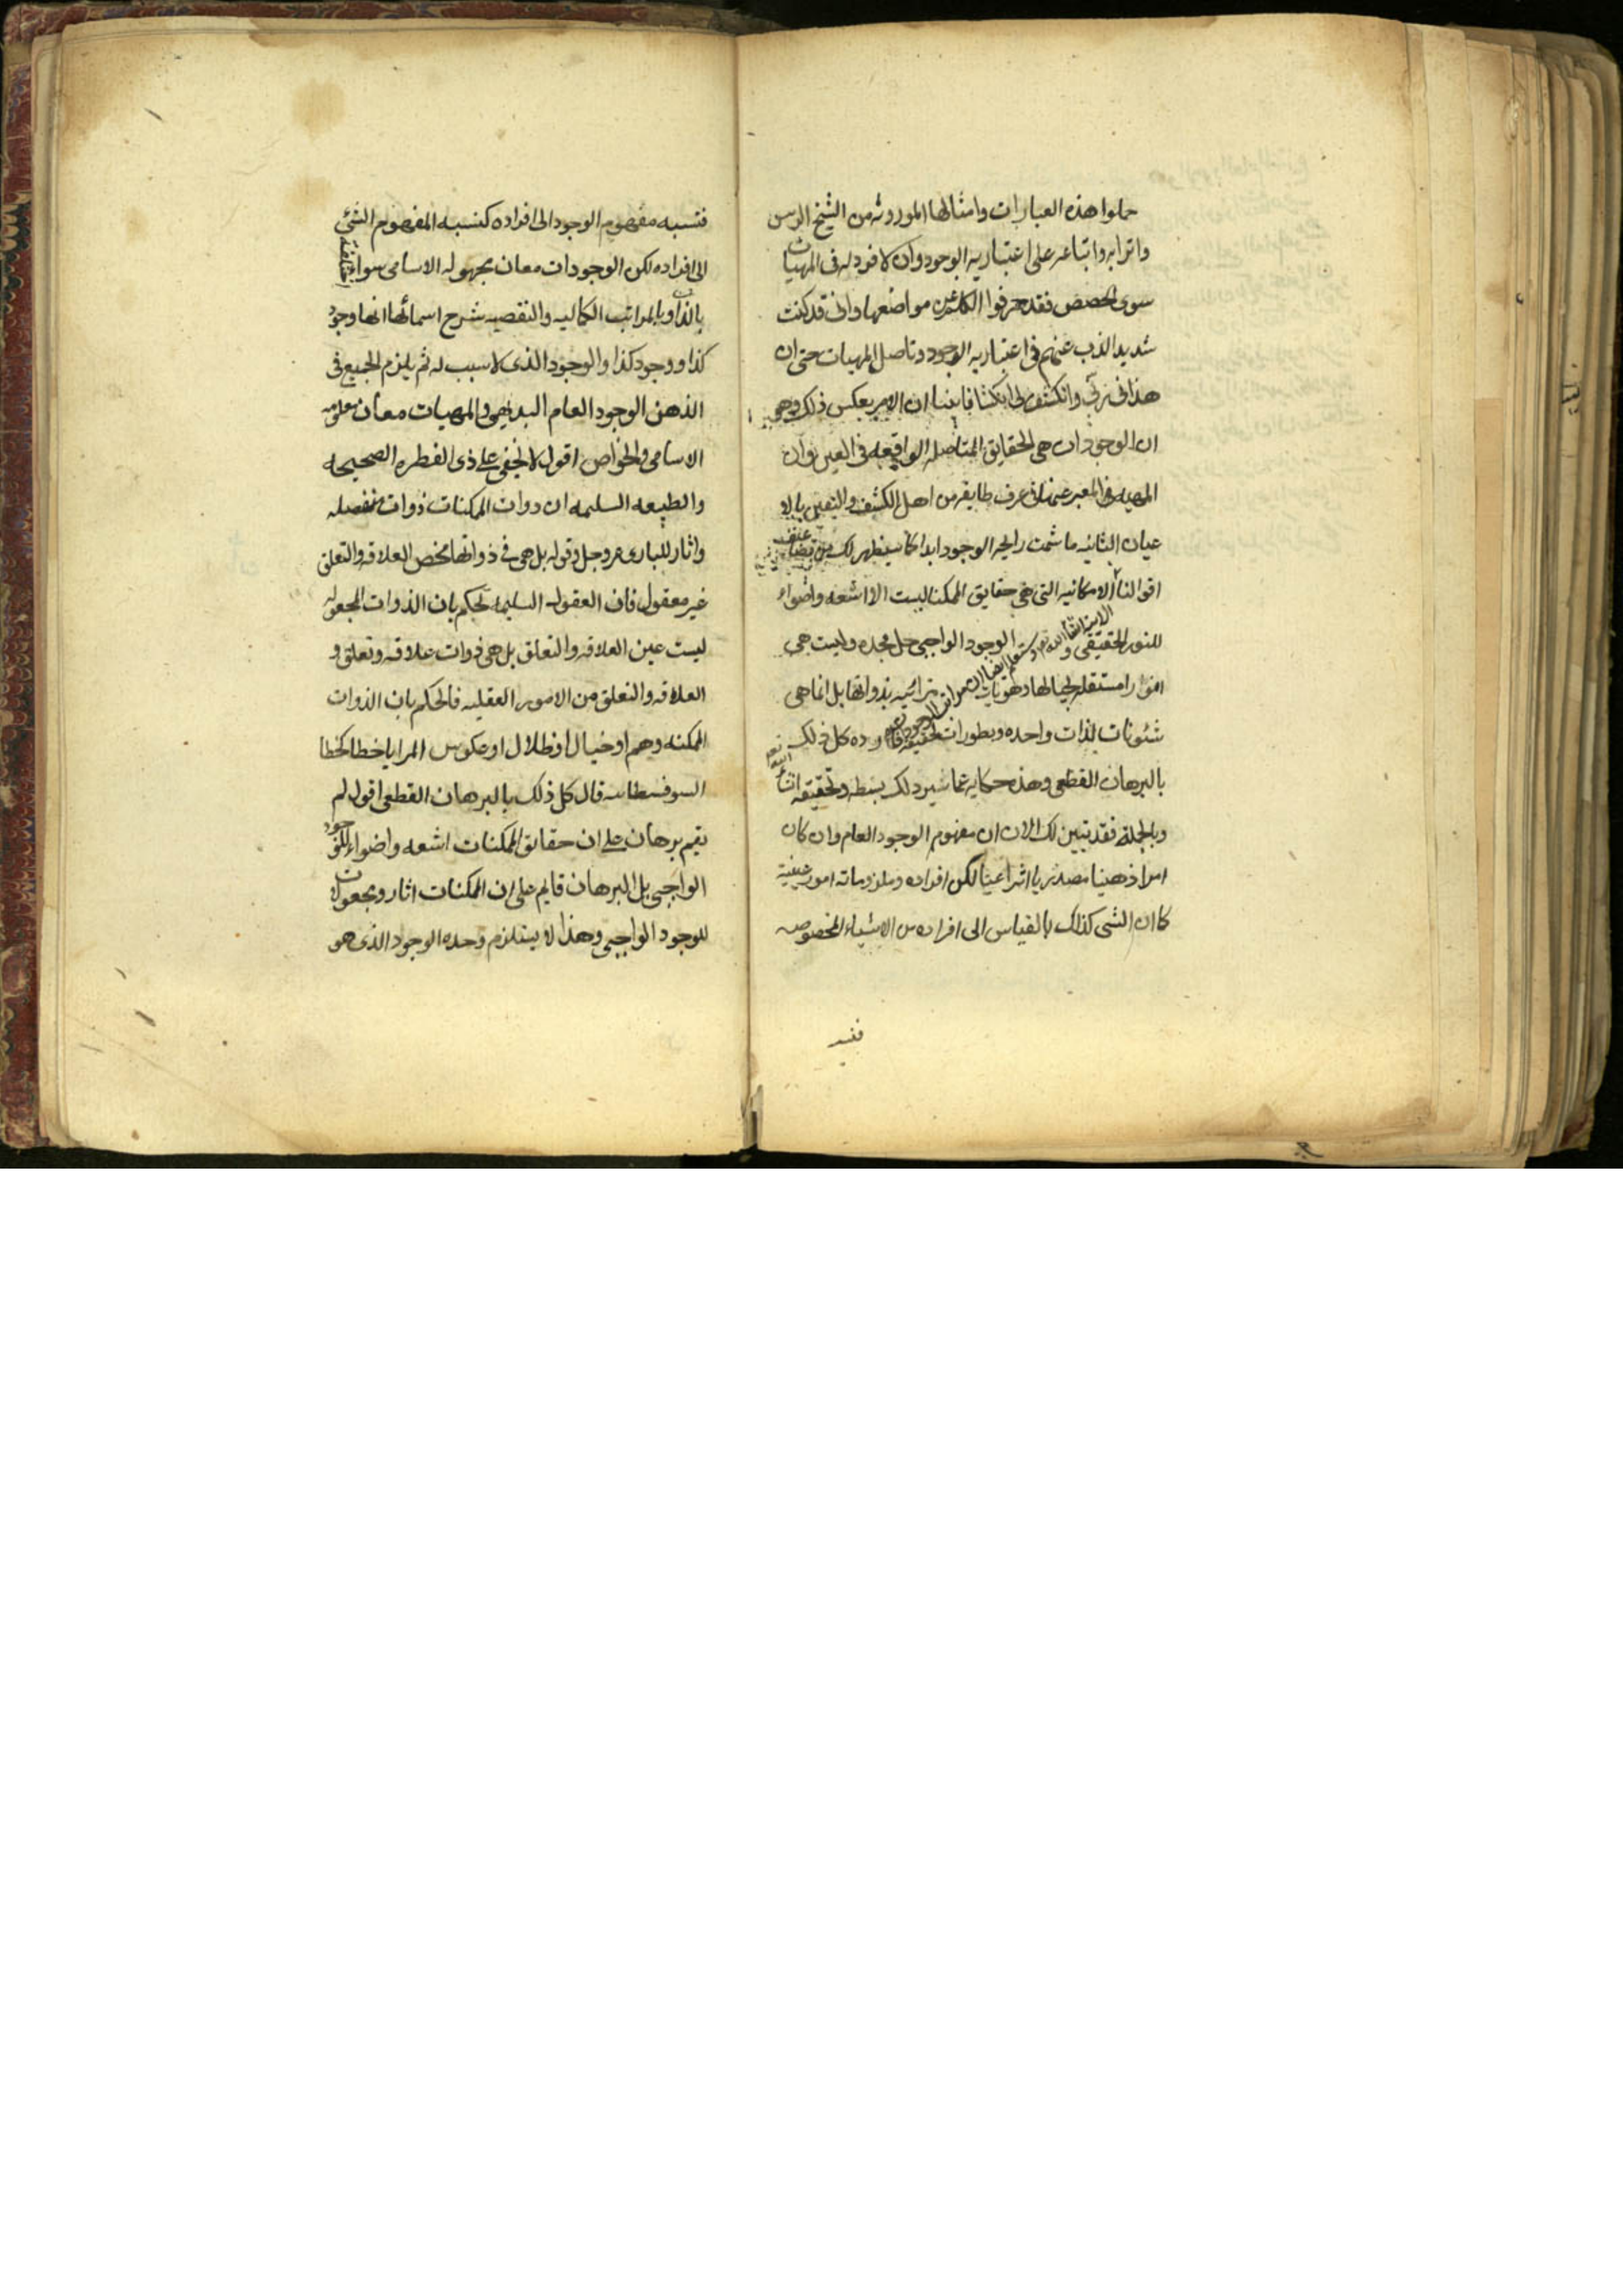 حملوا هذه العبارات وامثالها الموروثه من الشيخ الرئيس
واترابه واتباعه على اعتباريه الوجود وان لا فرد له فى المهيات
سوى الحصص فقد حرفوا الكلم عن مواضعها وانى قد كنت
شديد الذب عنهم فى اعتباريه الوجود وتاصل المهيات حتى ان
هدانى ربى وانكشف لى انكشافا بينا ان الامر بعكس ذلك وهى
ان الوجودات هى الحقايق المتاصله الواقعه فى العين وان
المهيه المعبر عنها فى عرف طايفه من اهل الكشف واليقين بالا
عيان الثابته ما شمت رايحه الوجود ابدا كما سيظهر لك من تضاعيف
اقوالنا الامكانيه التى هى حقايق الممكنات ليست الا اشعه واضواء
للنور الحقيقى و الوجود الواجبى جل مجده وليست هى
الاتيه انشاء الله وستعلم ايضا ان مراتب الوجودات
امورا مستقله بحيالها وهويات مترائسه بذواتها بل انما هى
شئونات لذات واحده وتطورات لحقيقه فارده كل ذلك
بالبرهان القطعى وهذه حكايه عما سيرد لك بسطه وتحقيقه انشاء الله تعم
وبالجملة فقد تبين لك الان ان مفهوم الوجود العام وان كان
امرا ذهنيا مصدريا انتزاعيا لكن افراده وملزوماته امور عينية
كما ان الشى كذلك بالقياس الى افراده من الاشياء المخصوصه
فنسبه
فنسبه مفهوم الوجود الى افراده كنسبه المفهوم الشئ
الى افراده لكن الوجودات معان مجهوله الاسامى سواء اختلفت
بالذات او بالمراتب الكماليه والنقصيه شرح اسمائها انها وجود
كذا ووجود كذا والوجود الذى لا سبب له ثم يلزم الجميع فى
الذهن الوجود العام البديهى والمهيات معان معلومه
الاسامى والخواص اقول لا يخفى على ذى الفطره الصحيحه
والطبيعه السليمه ان ذوات الممكنات ذوات منفصله
واثار للبارى عز وجل وقوله بل هى فى ذواتها محض العلاقه والتعلق
غير معقول فان العقول السليمه تحكم بان الذوات المجعوله
ليست عين العلاقه والتعلق بل هى ذوات علاقه وتعلق و
العلاقه والتعلق من الامور العقليه فالحكم بان الذوات
الممكنه وهم او خيال او ظلال او عكوس المرايا خطا كخطا
السوفسطائيه قال كل ذلك بالبرهان القطعى اقول لم
يقم برهان على ان حقائق الممكنات اشعه واضواء للوجود
الواجبى بل البرهان قايم على ان الممكنات اثار ومجعولات
للوجود الواجبى وهذا لا يستلزم وحده الوجود الذى هو